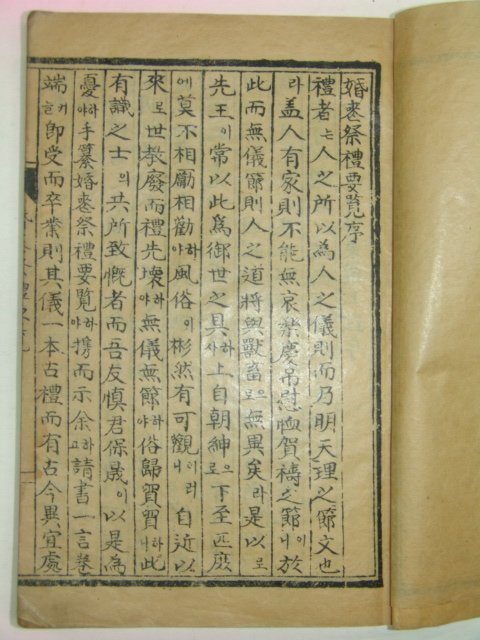 婚喪祭禮要覽序
禮者는人之所以爲人之儀則而乃明天理之節文也
라盖人有家則不能無哀榮慶吊慰恤賀禱之節이니於
此而無儀節則人之道將與獸畜로으無異矣라是以로
先王이常以此爲御世之具하사上自朝紳으로下至匹庶
에莫不相勵相勸하야風俗이彬然有可觀이러니自近以
來로世敎廢而禮先壞하야無儀無節하야俗歸貿貿하니此
有識之士의共所致慨者而吾友愼君保晟이以是爲
憂하야手纂婚喪祭禮要覽하야携而示余하고請書一言卷
端커늘卽受而卒業則其儀一本古禮而有古今異宜處